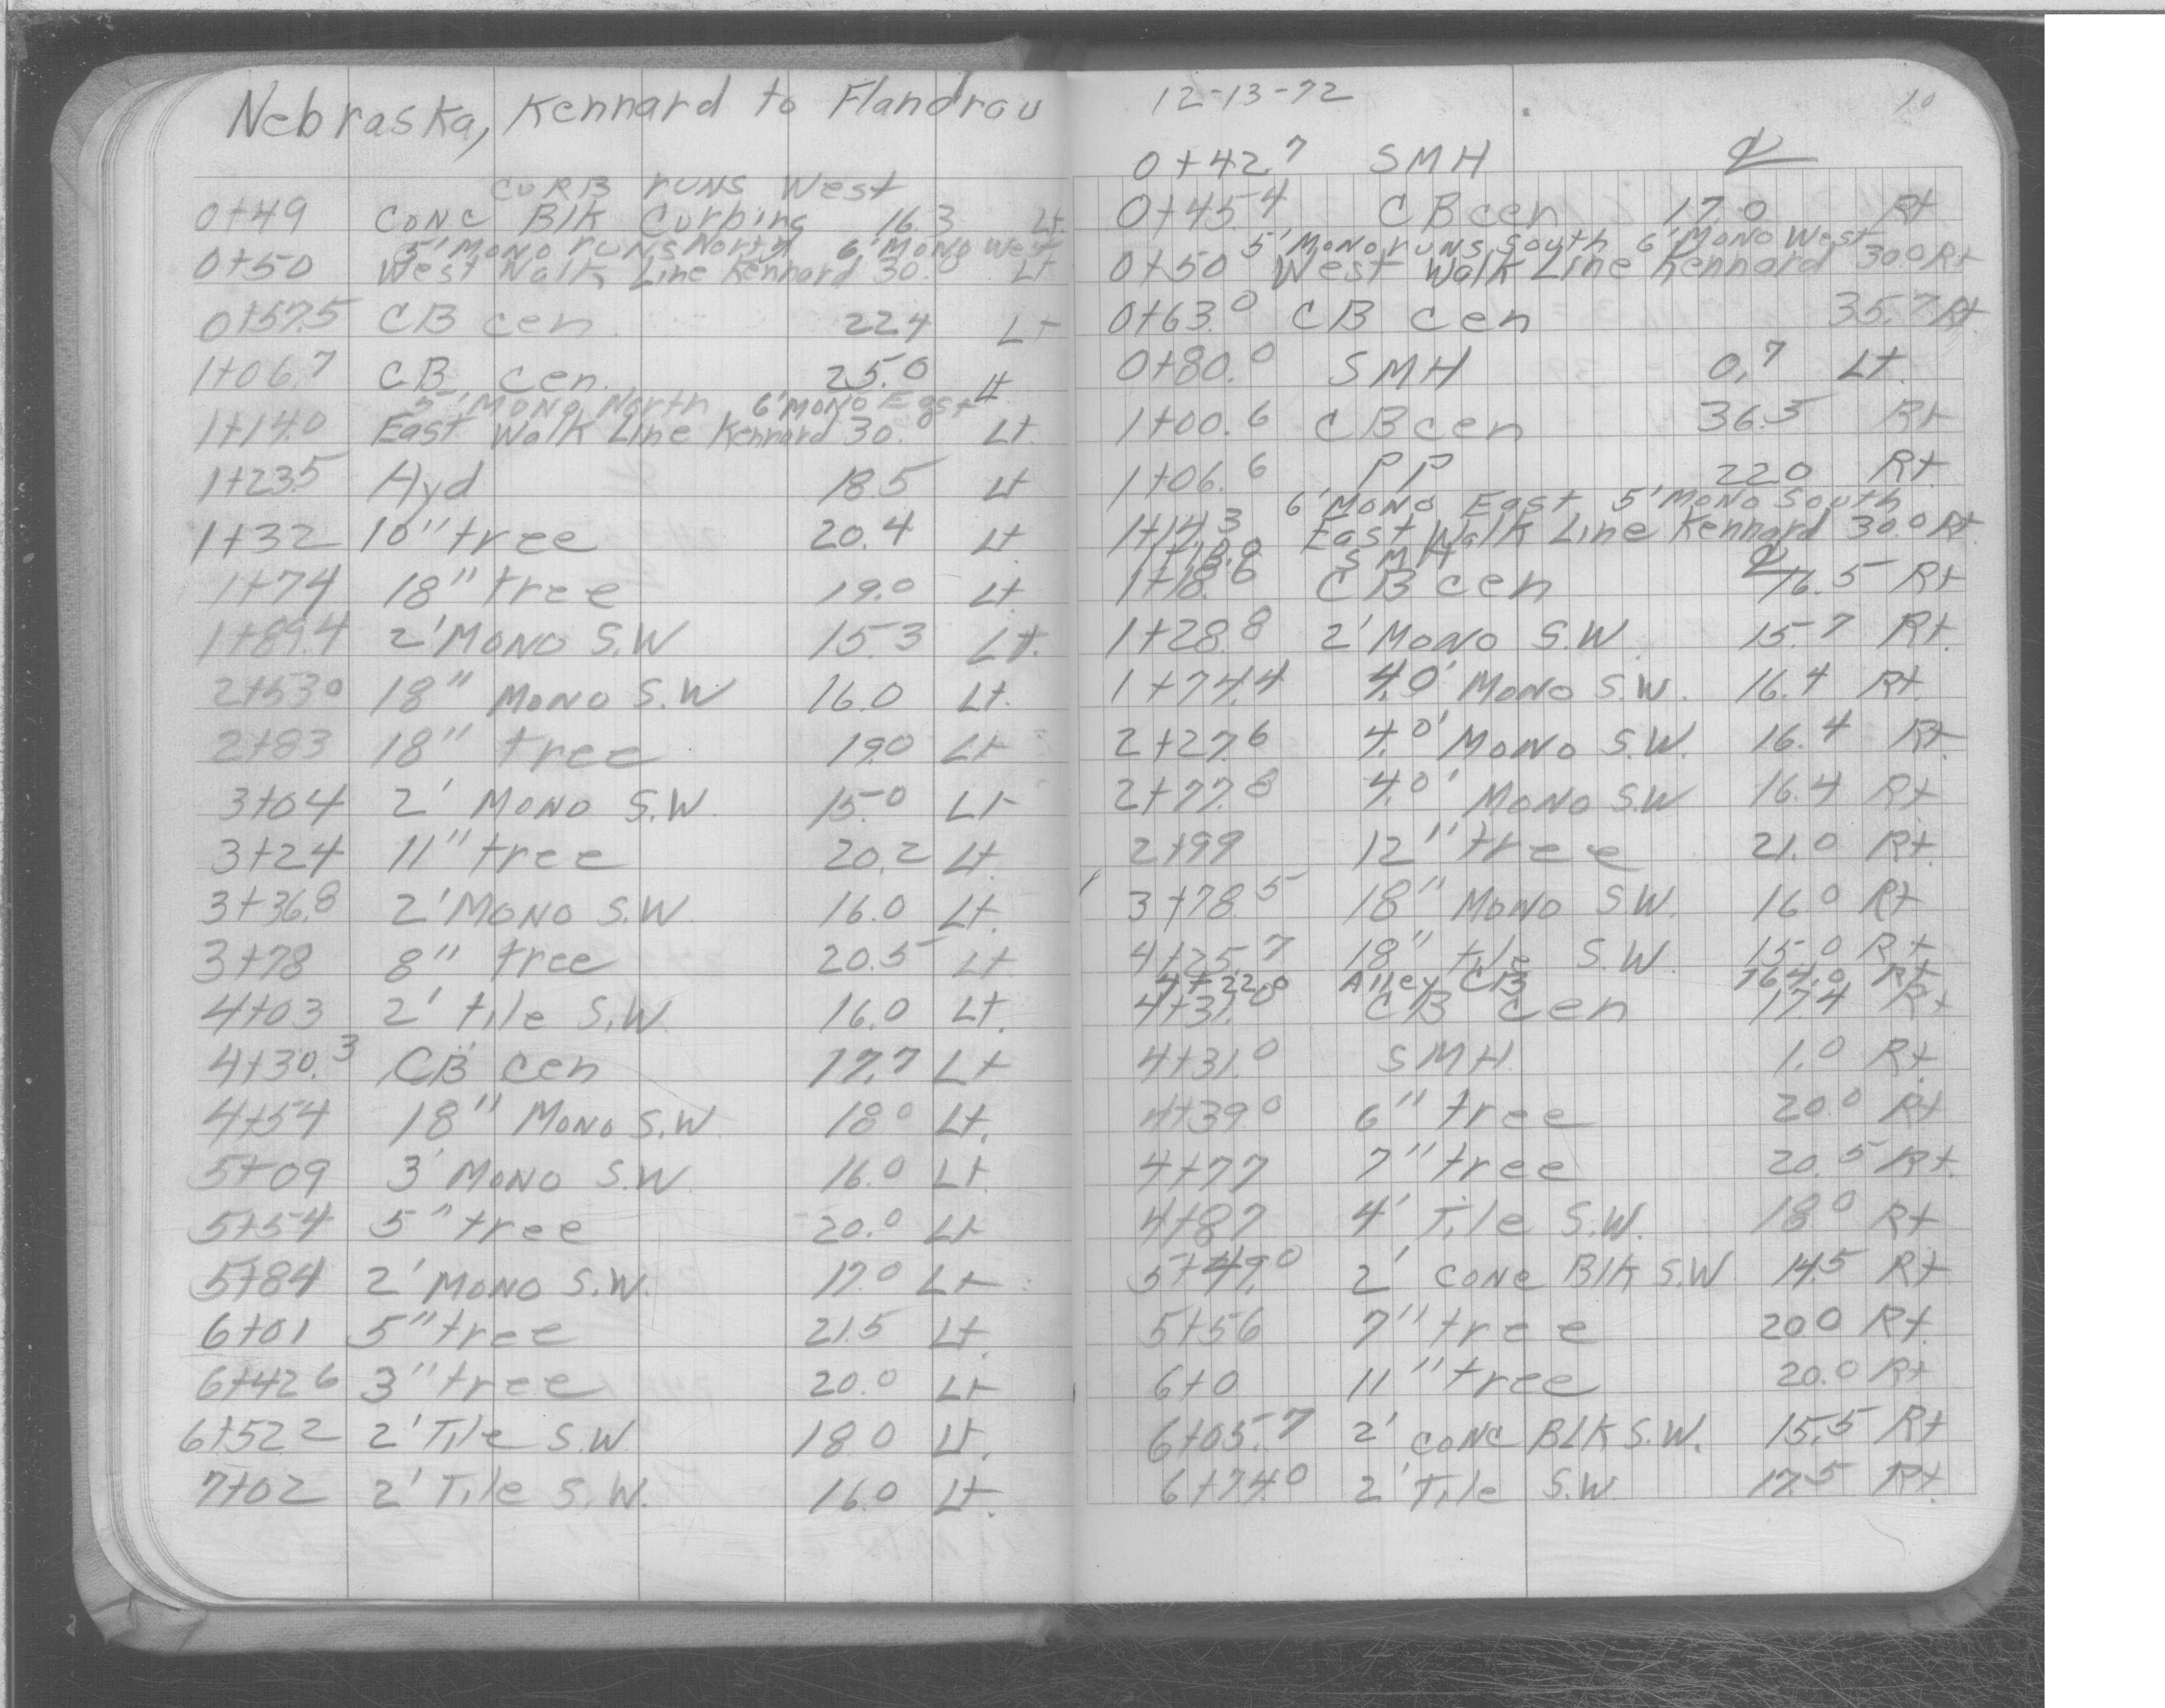 Nebraska, Kennard to Flandrau
CURB runs West
0+49 CONC Blk Curbing 16.3 Lt.
5' MONO runs North 6' MONO West
0+50 West Walk Line Kennard 30.0 Lt
0+57.5 CB cen 22.4 Lt
1+06.7 CB cen. 25.0 Lt
5' MONO North 6' MONO East
1+14.0 East Walk Line Kennard 30.0 Lt.
1+23.5 Hyd 18.5 Lt
1+32 10" tree 20.4 Lt.
1+74 18" tree 19.0 Lt.
1+89.4 2' MONO S.W 15.3 Lt.
2+53.0 18" MONO S.W 16.0 Lt.
2+83 18" tree 19.0 Lt
3+04 2' MONO S.W. 15.0 Lt
3+24 11" tree 20.2 Lt.
3+36.8 2' MONO S.W. 16.0 Lt.
3+78 8" tree 20.5 Lt
4+03 2' tile S.W. 16.0 Lt.
4+30.3 CB cen 17.7 Lt
4+54 18" MONO S.W. 18.0 Lt.
5+09 3' MONO S.W. 16.0 Lt.
5+54 5" tree 20.0 Lt
5+84 2' MONO S.W. 17.0 Lt
6+01 5" tree 21.5 Lt.
6+42.6 3" tree 20.0 Lt
6+52.2 2' Tile S.W 18.0 Lt.
7+02 2' Tile S.W. 16.0 Lt.
12-13-72 10
0+42.7 SMH ℄
0+45.4 CB cen 17.0 Rt
5' MONO runs South 6' MONO West
0+50 West Walk Line Kennard 30.0 Rt
0+63.0 CB cen 35.7 Rt.
0+80.0 SMH 0.7 Lt.
1+00.6 CB cen 36.5 Rt
1+06.6 PP 22.0 Rt.
6' MONO East 5' MONO South
1+14.3 East Walk Line Kennard 30.0 Rt.
SMH ℄
1+18.6 CB cen 16.5 Rt
1+28.8 2' MONO S.W. 15.7 Rt.
1+74.4 4.0' MONO S.W. 16.4 Rt.
2+27.6 4.0' MONO S.W. 16.4 Rt.
2+77.8 4.0' MONO S.W 16.4 Rt.
2+99 12" tree 21.0 Rt.
3+78.5 18" MONO S.W. 16.0 Rt
4+25.7 18" tile S.W. 15.0 Rt
4+22.0 Alley CB 164.0 Rt
4+31.0 CB cen 17.4 Rt
4+31.0 SMH 1.0 Rt.
4+39.0 6" tree 20.0 Rt
4+77 7" tree 20.5 Rt.
4+87 4' Tile S.W. 18.0 Rt
5+49.0 2' CONC Blk S.W 14.5 Rt
5+56 7" tree 20.0 Rt.
6+0 11" tree 20.0 Rt
6+05.7 2' CONC BLK S.W. 15.5 Rt
6+74.0 2' Tile S.W. 17.5 Rt.